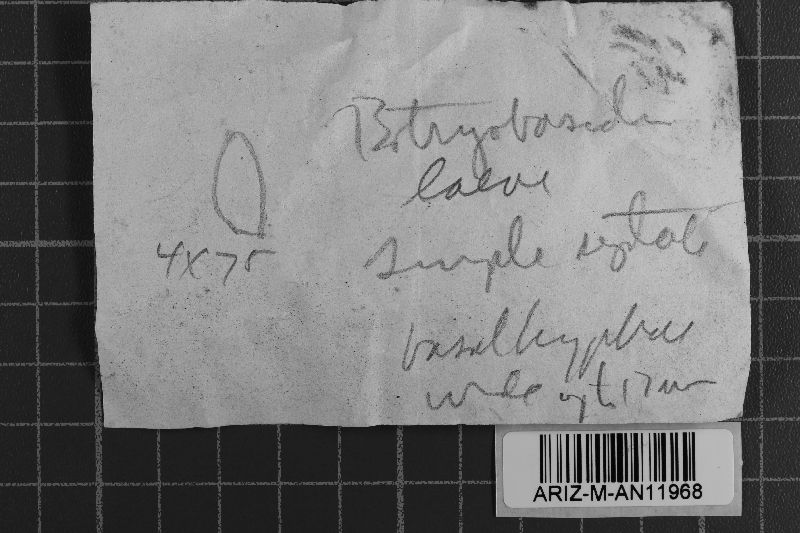 Botryobasidium
laeve
4 x 7.5
simple septate
basal hyphae
wide up to 17 um
ARIZ-M-AN11968